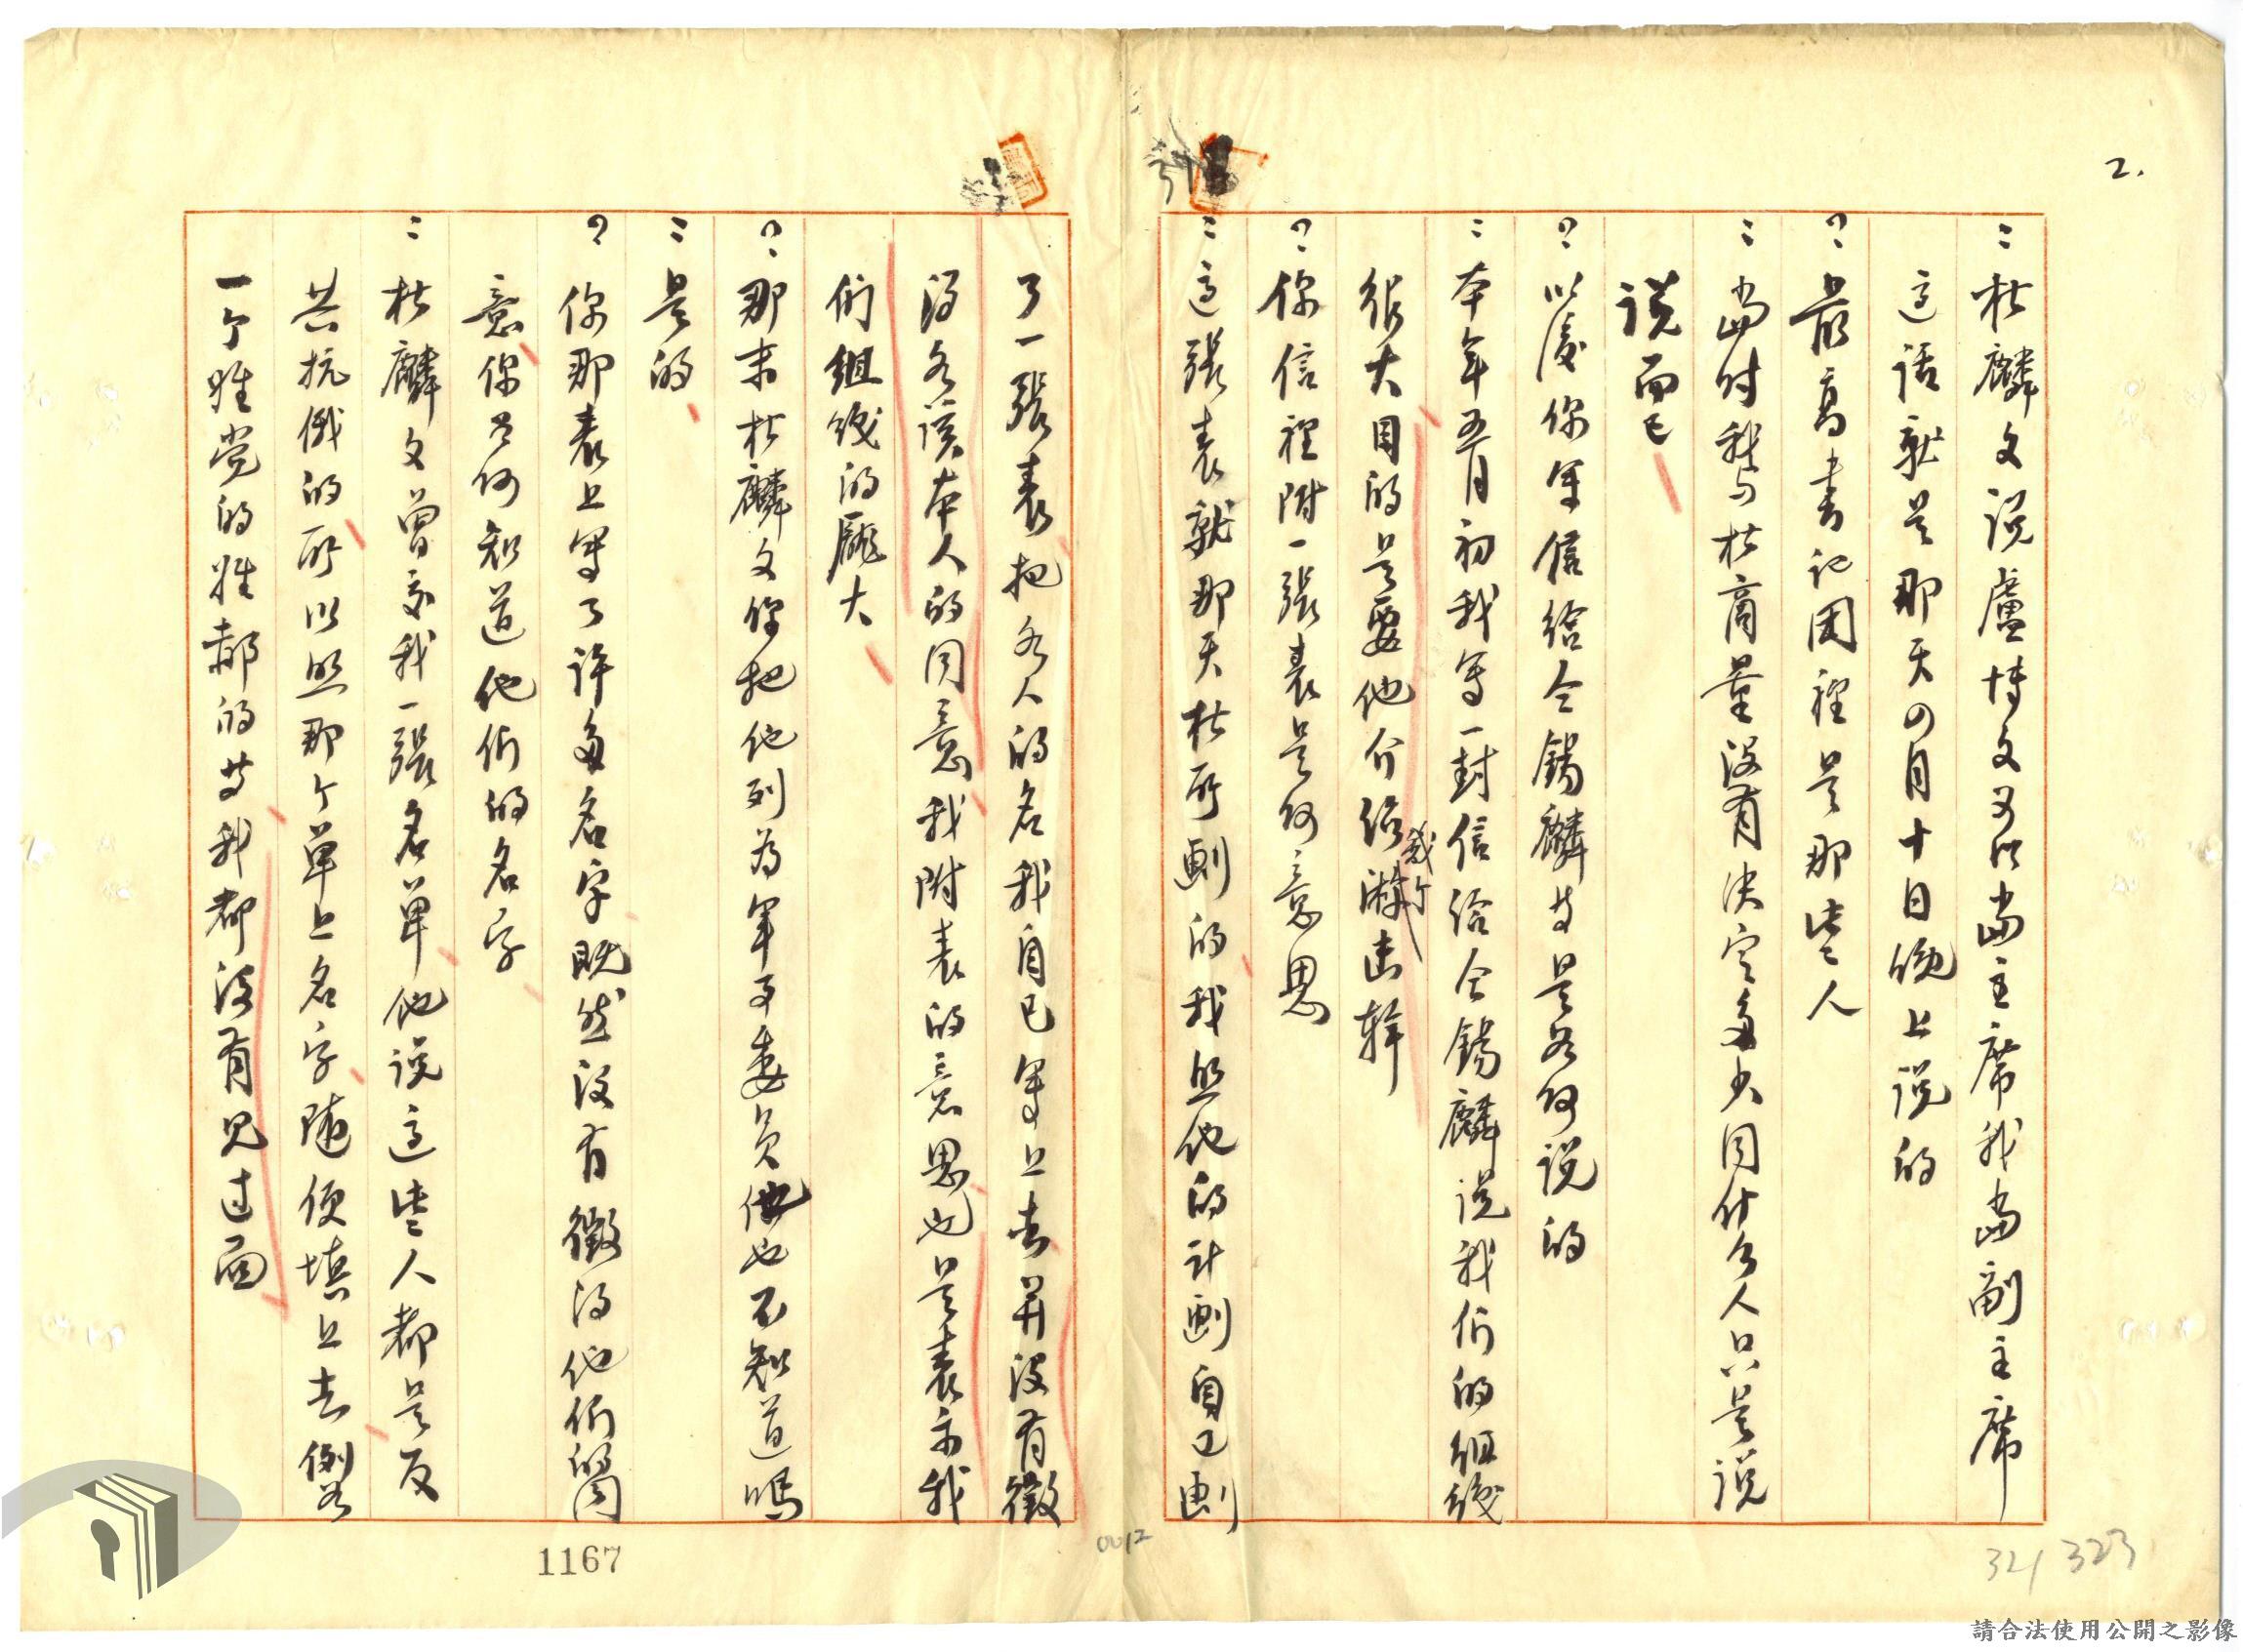 2.
：杜麟文說盧博文可以當主席我當副主席
這話就是那天四月十日晚上說的
？最高書記团裡是那些人
：當时我与杜商量沒有决定多少同什么人只是說
說而已
？以後你写信給仝錫麟等是如何說的
：本年五月初我写一封信給仝錫麟說我们的組織
很大目的是要他介绍幾个游击幹
？你信裡附一張表是何意思
：這張表就那天杜所劃的我照他的計劃自己劃
了一張表把各人的名我自己写上去并沒有徵
得各该本人的同意我附表的意思也是表示我
们組織的龐大
？那末杜麟文你把他列为軍事委员他也不知道嗎
：是的
？你那表上写了许多名字既然沒有徵得他们的同
意你是何知道他们的名字
：杜麟文曾交我一張名單他說這些人都是反
共抗俄的所以照那个單上名字随便填上去例如
一个雅党的雅郝的等我都沒有見过面
1167
0012
321 323
請合法使用公開之影像